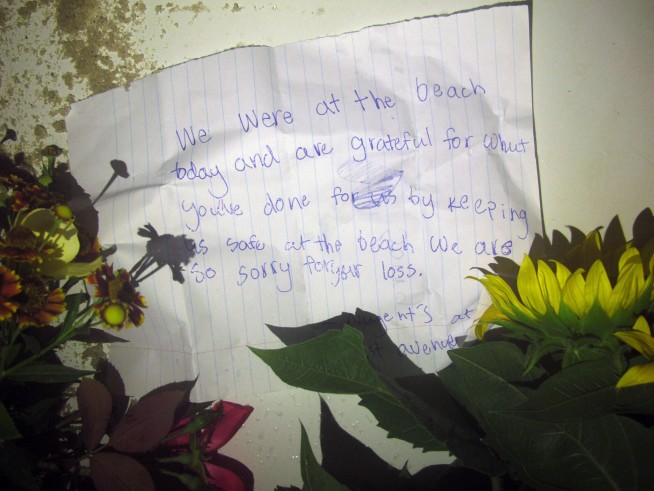 We were at the beach
today and are grateful for what
you've done for us by keeping
us safe at the beach We are
so sorry for your loss.
at
avenue